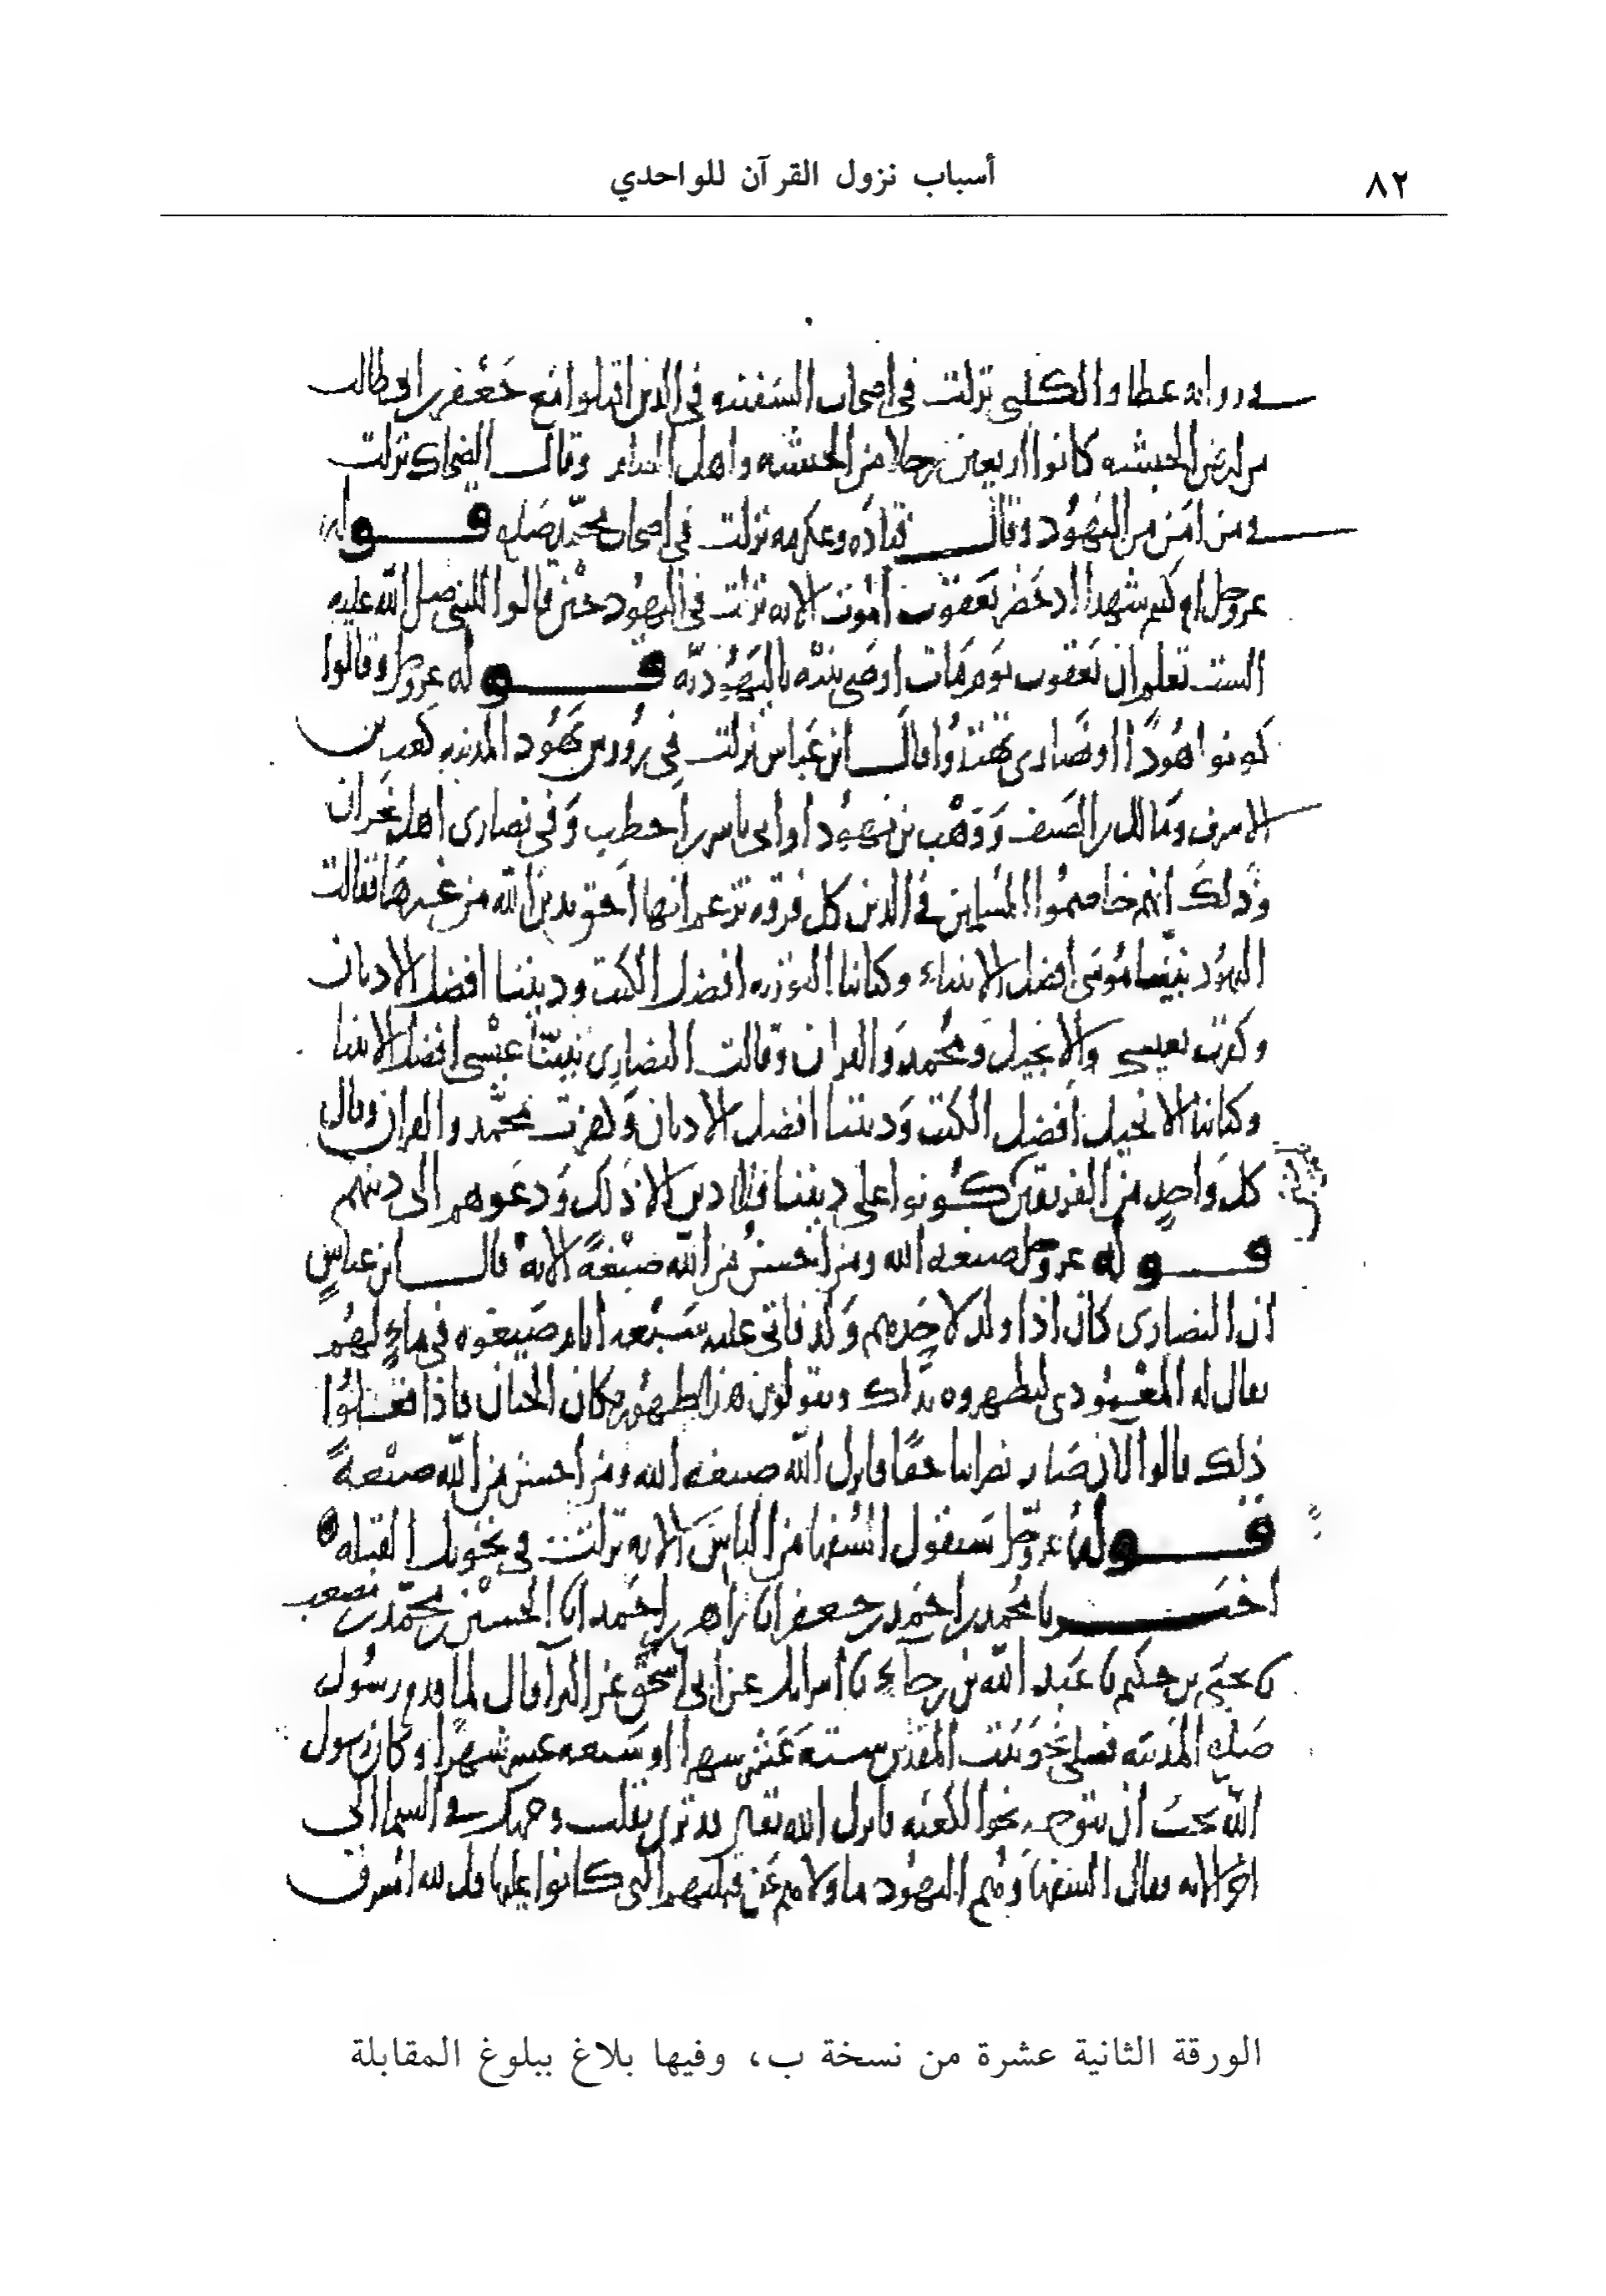 ٨٢
أسباب نزول القرآن للواحدي
في رواية عطا والكلبي نزلت في اصحاب السفينه في الذين اقبلوا مع جعفر بن ابي طالب
من ارض الحبشه كانوا اربعين رجلا من الحبشه واهل الشام وقال الضحاك نزلت
في من امن من اليهود وقال قتاده وعكرمه نزلت في اصحاب محمد صلع قوله
عز وجل ام كنتم شهدا اذ حضر يعقوب الموت الايه نزلت في اليهود حين قالوا للنبي صلى الله عليه
الست تعلم ان يعقوب يوم مات اوصى بنيه باليهوديه قوله عز وجل وقالوا
كونوا هودا او نصارى تهتدوا قال ابن عباس نزلت في روس يهود المدينه كعب بن
الاشرف ومالك بن الصيف ووهب بن يهودا وابي ياسر بن احطب وفي نصارى اهل نجران
وذلك انهم خاصموا المسلمين في الدين كل فرقه تزعم انها احق بدين الله من غيرها فقالت
اليهود نبينا موسى افضل الانبياء وكتابنا التوريه افضل الكتب وديننا افضل الاديان
وكفرت بعيسى والانجيل ومحمد والقران وقالت النصارى نبينا عيسى افضل الانبيا
وكتابنا الانجيل افضل الكتب وديننا افضل الاديان وكفرت بمحمد والقران وقال
كل واحد من الفريقين كونوا على ديننا فلا دين الا ذلك ودعوهم الى دينهم
قوله عز وجل صبغه الله ومن احسن من الله صبغة الايه قال ابن عباس
ان النصارى كان اذا ولد لاحدهم ولد فاتى عليه سبعه ايام صبغوه في ماء لهم
يقال له المعمودي ليطهروه بذلك ويقولون هذا طهور مكان الختان فاذا فعلوا
ذلك قالوا الان صار نصرانيا حقا فانزل الله صبغه الله ومن احسن من الله صبغة
قوله عز وجل سيقول السفها من الناس الايه نزلت في تحويل القبله
اخبرنا محمد بن احمد بن جعفر انا زاهر بن احمد انا الحسين بن محمد بن مصعب
نا يحيى بن حكيم نا عبد الله بن رجاء نا اسرايل عن ابي اسحق عن البرا قال لما قدم رسول
صلع المدينه فصلى نحو بيت المقدس سته عشر شهرا او سبعه عشر شهرا وكان رسول
الله يحب ان يتوجه نحو الكعبه فانزل الله تعلى قد نرى تقلب وجهك في السما الى
اخر الايه فقال السفها وهم اليهود ما ولاهم عن قبلتهم التي كانوا عليها قل لله المشرق
الورقة الثانية عشرة من نسخة ب، وفيها بلاغ ببلوغ المقابلة